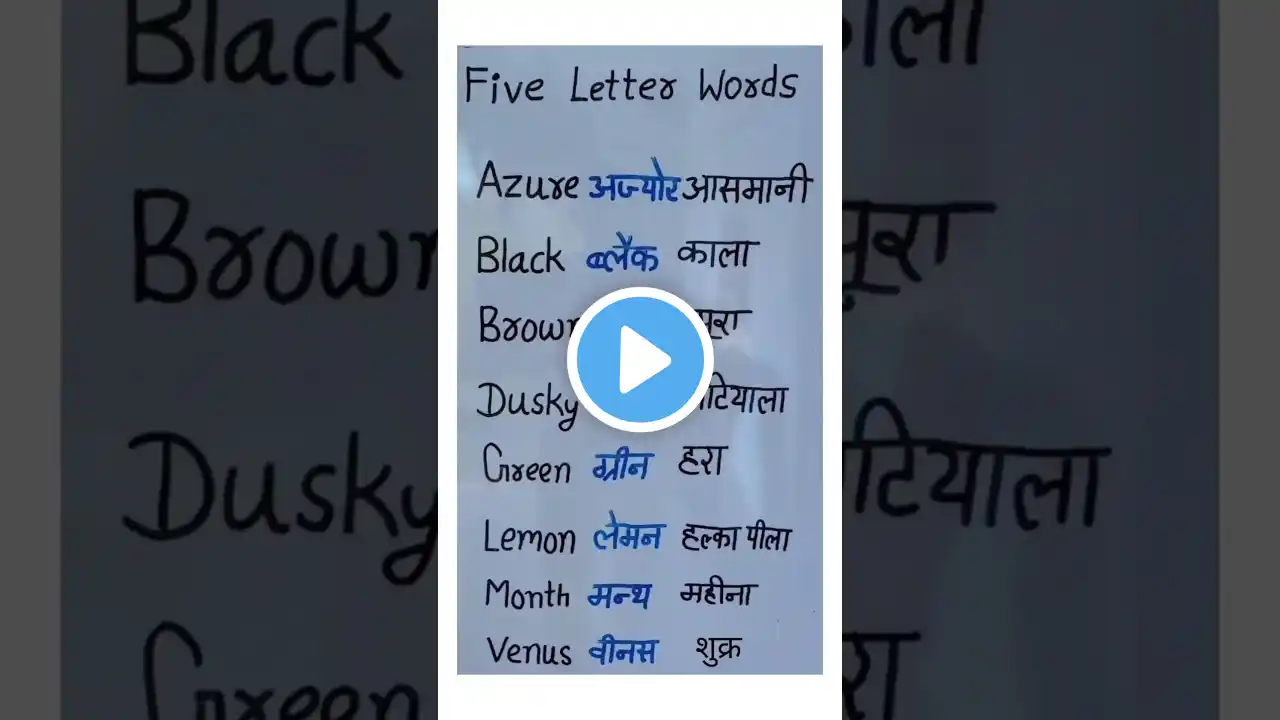 Five Letter Words
Azure अज्योर आसमानी
Black ब्लैक काला
Brown
Dusky
Green ग्रीन हरा
Lemon लेमन हल्का पीला
Month मन्थ महीना
Venus वीनस शुक्र